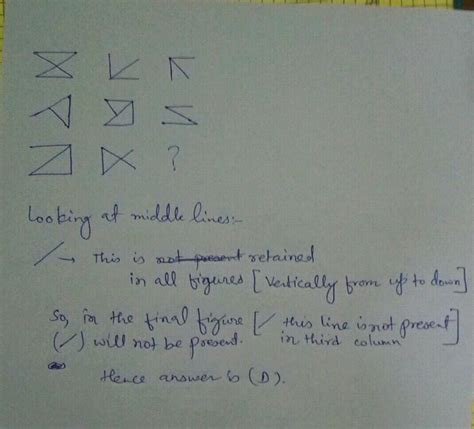 ?
Looking at middle lines:-
/ → This is not present retained
in all figures [Vertically from up to down]
So, in the final figure [/ this line is not present
(/) will not be present. in third column]
Hence answer is (D).